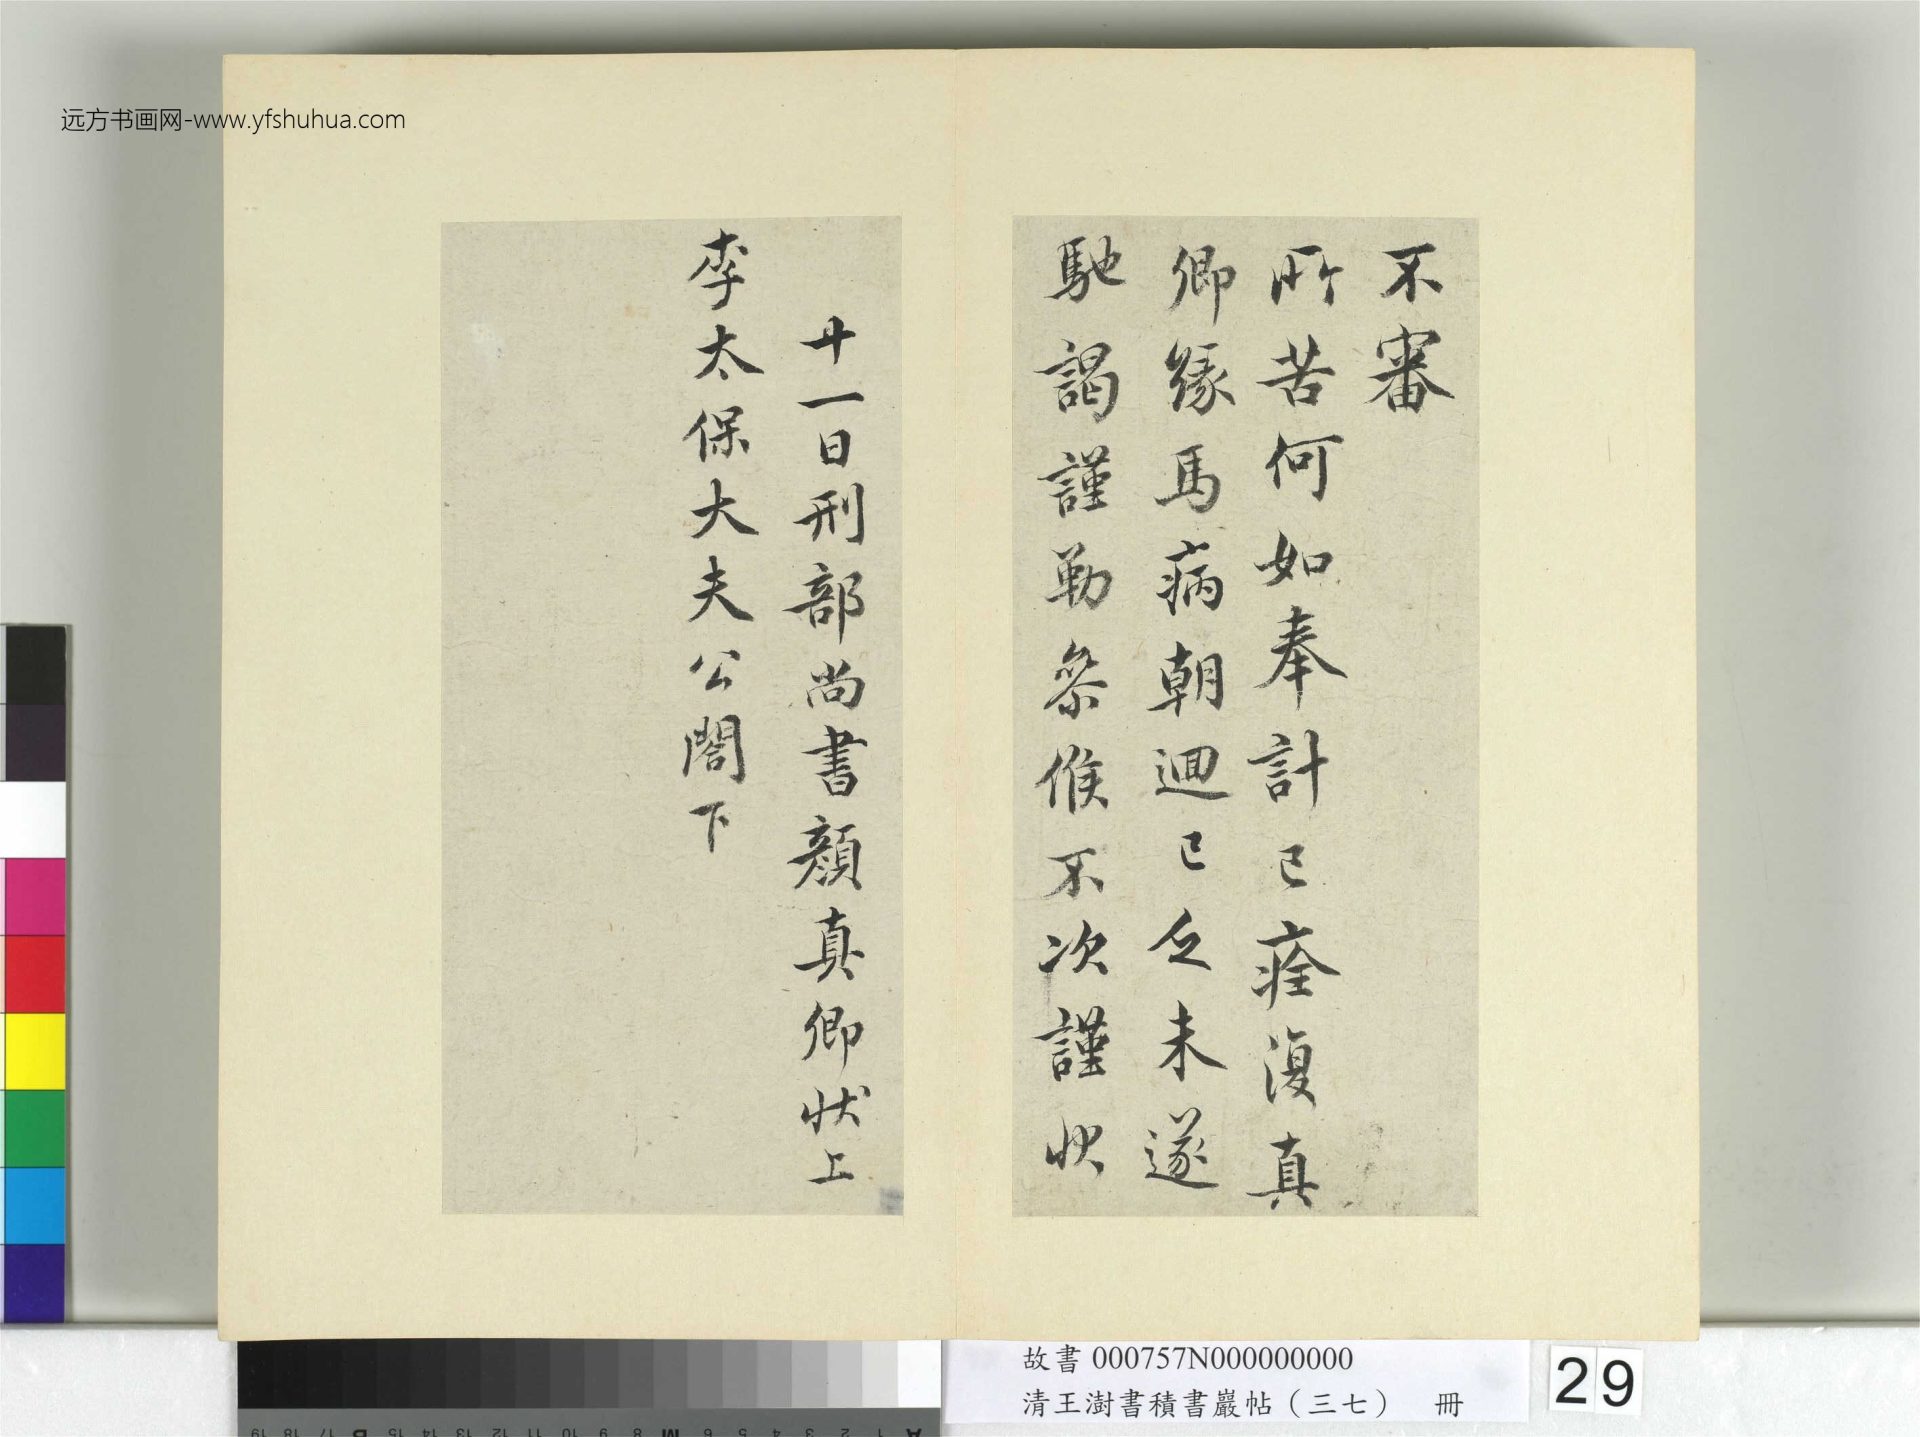 远方书画网-www.yfshuhua.com
不審
所苦何如奉計已痊復真
卿緣馬病朝迴已乏未遂
馳謁謹勒叅候不次謹狀
廿一日刑部尚書顏真卿狀上
李太保大夫公閤下
故書 000757N000000000
清王澍書積書巖帖（三七） 冊
29
19 18 17 16 15 14 13 12 11 10 9 8 7 6 5 4 3 2 1
B M A